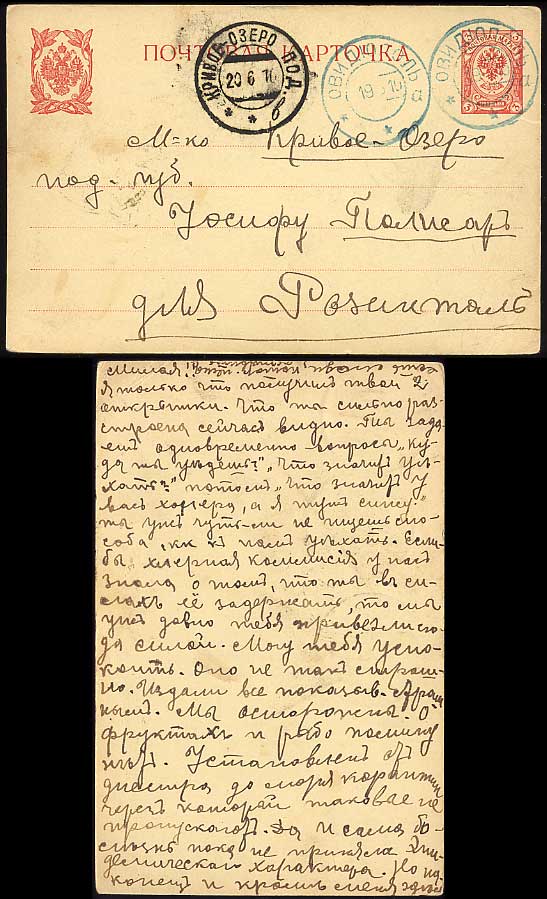 ПОЧТОВАЯ КАРТОЧКА
КРИВОЕ-ОЗЕРО ПОД.
29 6 10
ОВИДІОПОЛЬ
19
ОВИДІОПОЛЬ
М=ко Кривое-Озеро
под. губ.
Іосифу Полисаръ
для Розенталь
Милая!
Я только что получилъ твои 2
открытки. Что ты сильно раз-
строена сейчасъ видно. Ты зада
ешь одновременно вопросы „Ку-
да ты уѣдешь?“ „Что значитъ уѣ-
хать?“ потомъ „что значитъ у
васъ холера, а я тутъ сижу.“
Ты ужъ чуть-ли не ищешь спо-
соба, какъ къ намъ уѣхать. Если-
бы холерная коммисія у насъ
знала о томъ, что ты въ си-
лахъ её задержать, то мы
ужъ давно тебя привезли сю-
да силой. Могу тебя успо-
коить. Оно не такъ страш-
но. Издали все показыв. страш
нымъ. Мы осторожны. О
фруктахъ и рыбѣ помину
нѣтъ. Установленъ отъ
днестра до моря карантин
черезъ который таковые не
пропускаютъ. Да и сама бо-
лѣзнь пока не приняла Эпи-
демическаго характера. Но на
конецъ и кромѣ меня здѣсь